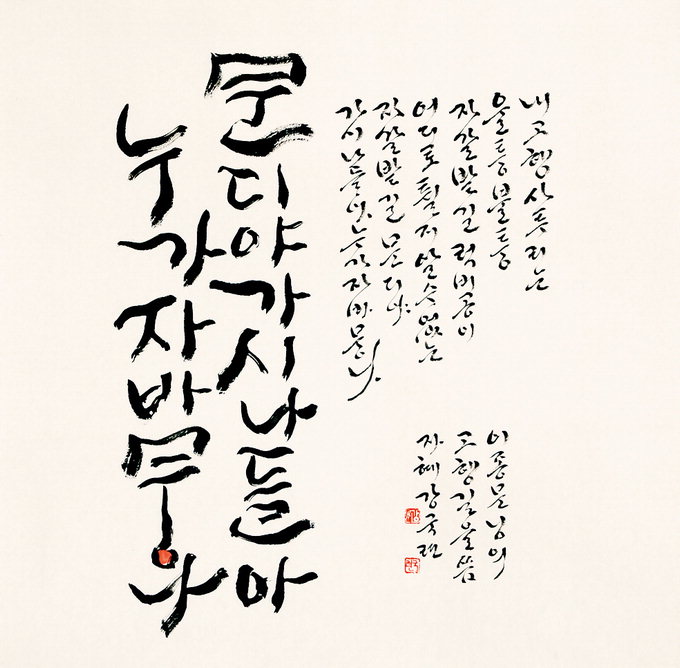 문디야가시나들아
누가자바무나
내 고향 사투리는
울퉁불퉁
자갈밭길 럭비공이
어디로 튈지 알 수 없는
자갈밭길 문디야
가시나들아 누가 자바무나
이종문님의
을 씀
자혜 강국련